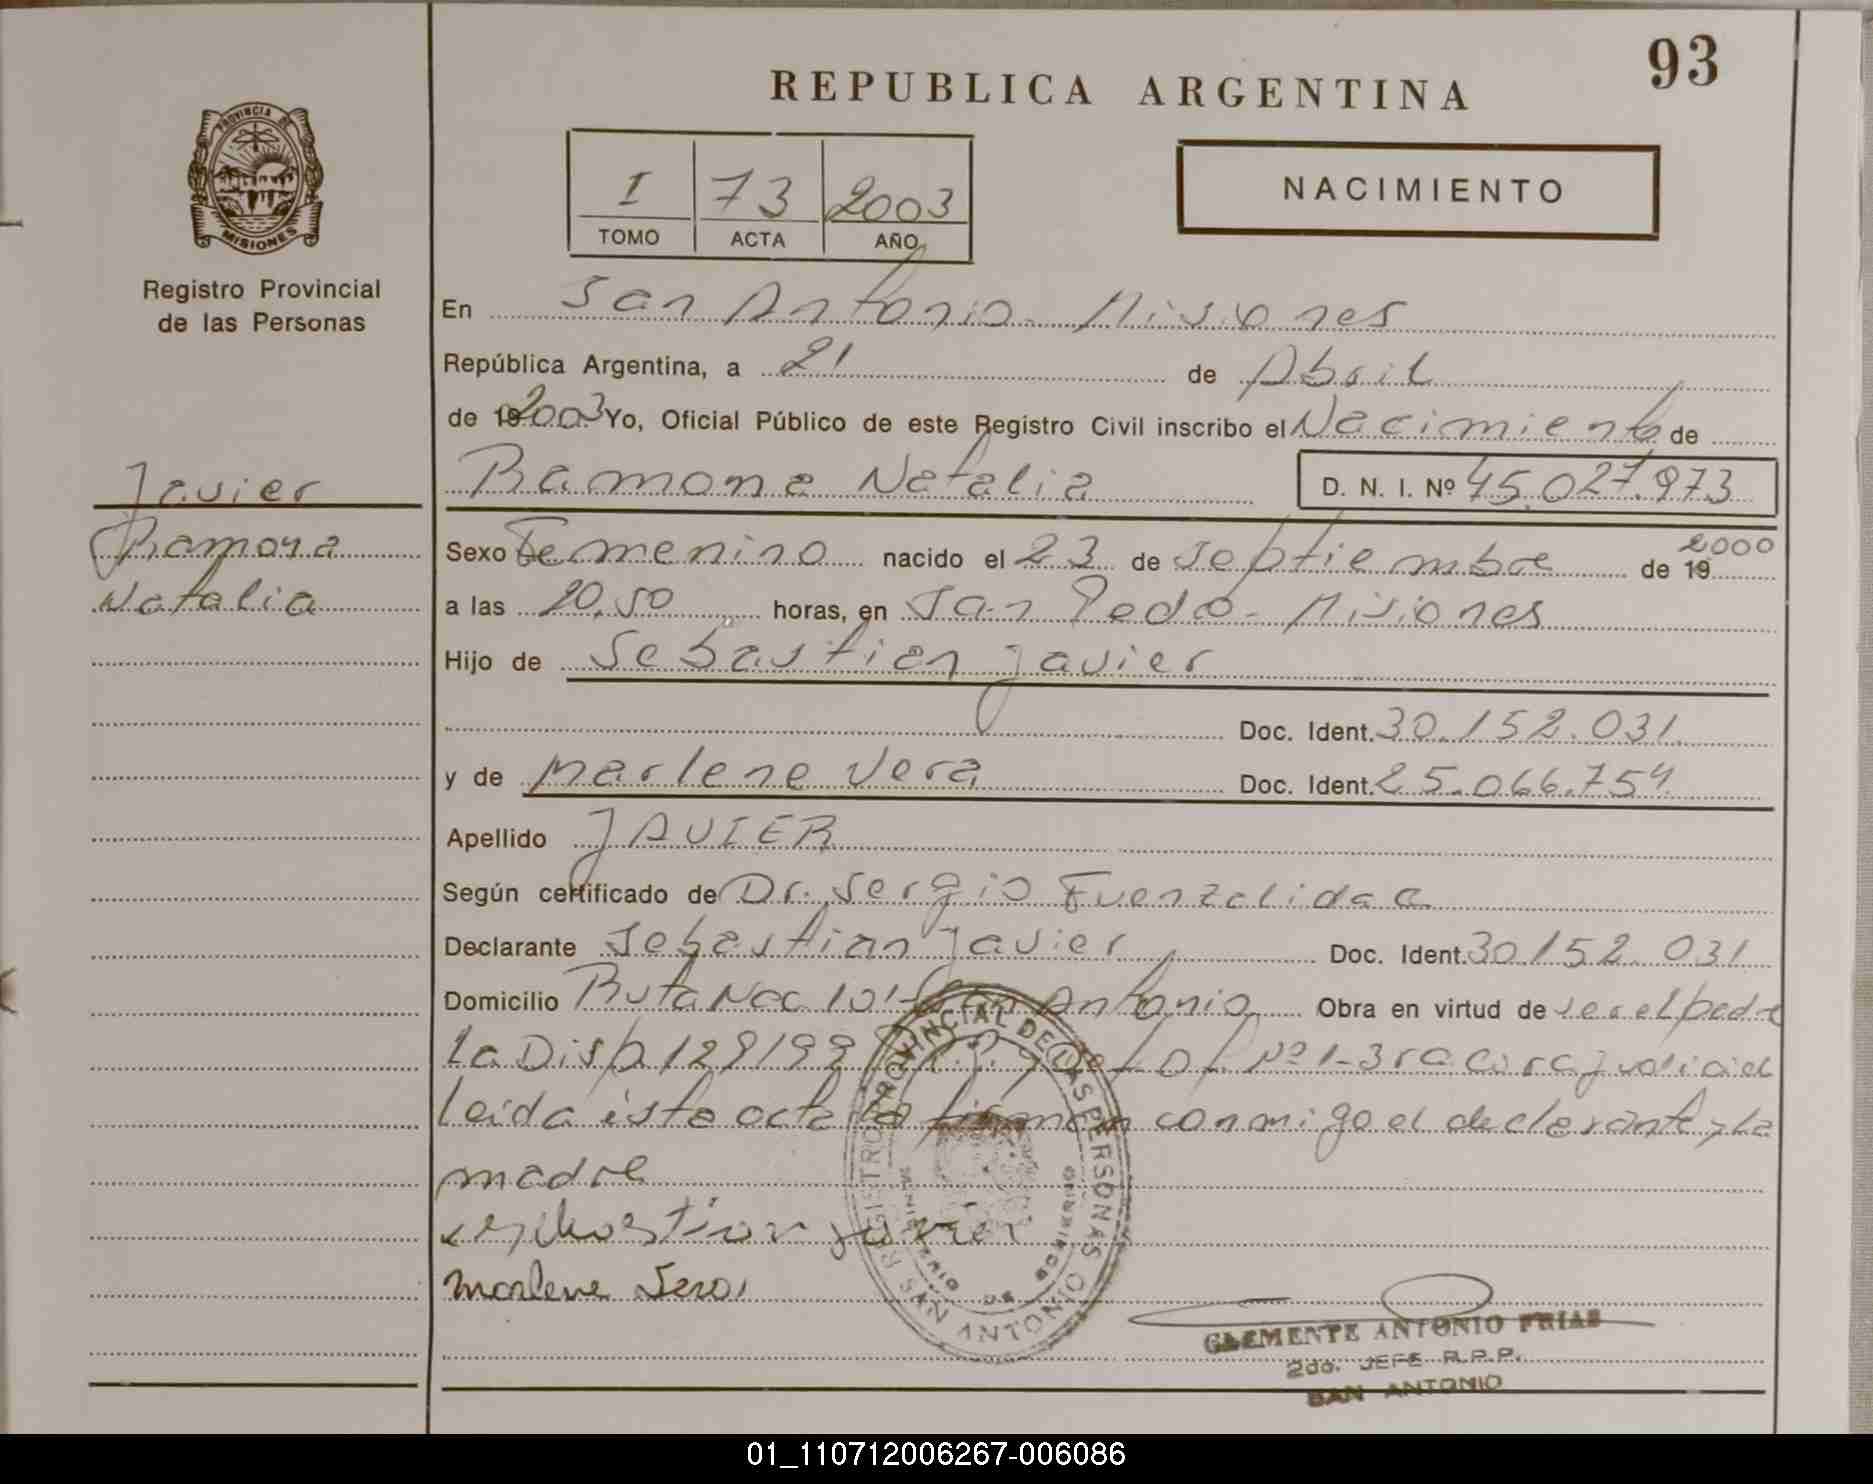 93
REPUBLICA ARGENTINA
PROVINCIA DE
MISIONES
Registro Provincial
de las Personas
I 73 2003
TOMO ACTA AÑO
NACIMIENTO
En San Antonio - Misiones
República Argentina, a 21 de Abril
de 19 2003 Yo, Oficial Público de este Registro Civil inscribo el Nacimiento de
Javier
Ramona Natalia D. N. I. Nº 45.027.973
Ramona
Natalia
Sexo Femenino nacido el 23 de Septiembre de 19 2000
a las 20,50 horas, en San Pedro - Misiones
Hijo de Sebastian Javier
Doc. Ident. 30.152.031
y de Marlene Vera Doc. Ident. 25.066.754
Apellido JAVIER
Según certificado de Dr. Sergio Fuenzalida
Declarante Sebastian Javier Doc. Ident. 30152.031
Domicilio Ruta Nac 101 - San Antonio Obra en virtud de ser el padre
La Disp 129/99 Nº 1-3ra judicial
Leida ésta acta la firman conmigo el declarante y La
madre
Sebastian Javier
Marlene Vera
REGISTRO PROVINCIAL DE LAS PERSONAS
MINISTERIO DE GOBIERNO
SAN ANTONIO
CLEMENTE ANTONIO FRIAS
2do. JEFE R.P.P.
SAN ANTONIO
01_110712006267-006086